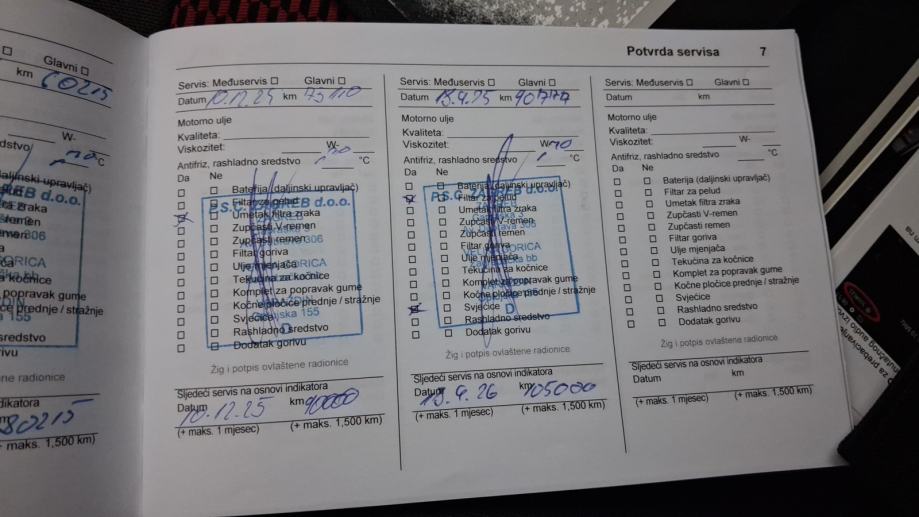 Glavni
km 60215
W-
dstvo °C
daljinski upravljač)
EB d.o.o.
ča zraka
remen
emen
306
ORICA
ča
a kočnice
popravak gume
ce prednje / stražnje
155
redstvo
rivu
ne radionice
dikatora
80215
maks. 1,500 km)
Potvrda servisa 7
Servis: Međuservis Glavni
Datum 10.12.24 km 75110
Motorno ulje
Kvaliteta:
Viskozitet: W-
Antifriz, rashladno sredstvo °C
Da Ne
Baterija (daljinski upravljač)
Filtar za pelud
Umetak filtra zraka
Zupčasti V-remen
Zupčasti remen
Filtar goriva
Ulje mjenjača
Tekućina za kočnice
Komplet za popravak gume
Kočne pločice prednje / stražnje
Svjećice
Rashladno sredstvo
Dodatak gorivu
P.S.C. ZAGREB d.o.o.
306
GORICA
155
Žig i potpis ovlaštene radionice
Sljedeći servis na osnovi indikatora
Datum 10.12.25 km 90000
(+ maks. 1 mjesec) (+ maks. 1,500 km)
Servis: Međuservis Glavni
Datum km
Motorno ulje
Kvaliteta:
Viskozitet: W-
Antifriz, rashladno sredstvo °C
Da Ne
Baterija (daljinski upravljač)
Filtar za pelud
Umetak filtra zraka
Zupčasti V-remen
Zupčasti remen
Filtar goriva
Ulje mjenjača
Tekućina za kočnice
Komplet za popravak gume
Kočne pločice prednje / stražnje
Svjećice
Rashladno sredstvo
Dodatak gorivu
P.S.C. ZAGREB d.o.o.
GORICA
Žig i potpis ovlaštene radionice
Sljedeći servis na osnovi indikatora
Datum 26 km 105000
(+ maks. 1 mjesec) (+ maks. 1,500 km)
Servis: Međuservis Glavni
Datum km
Motorno ulje
Kvaliteta:
Viskozitet: W-
Antifriz, rashladno sredstvo °C
Da Ne
Baterija (daljinski upravljač)
Filtar za pelud
Umetak filtra zraka
Zupčasti V-remen
Zupčasti remen
Filtar goriva
Ulje mjenjača
Tekućina za kočnice
Komplet za popravak gume
Kočne pločice prednje / stražnje
Svjećice
Rashladno sredstvo
Dodatak gorivu
Žig i potpis ovlaštene radionice
Sljedeći servis na osnovi indikatora
Datum km
(+ maks. 1 mjesec) (+ maks. 1,500 km)
za prebacivanje
audio